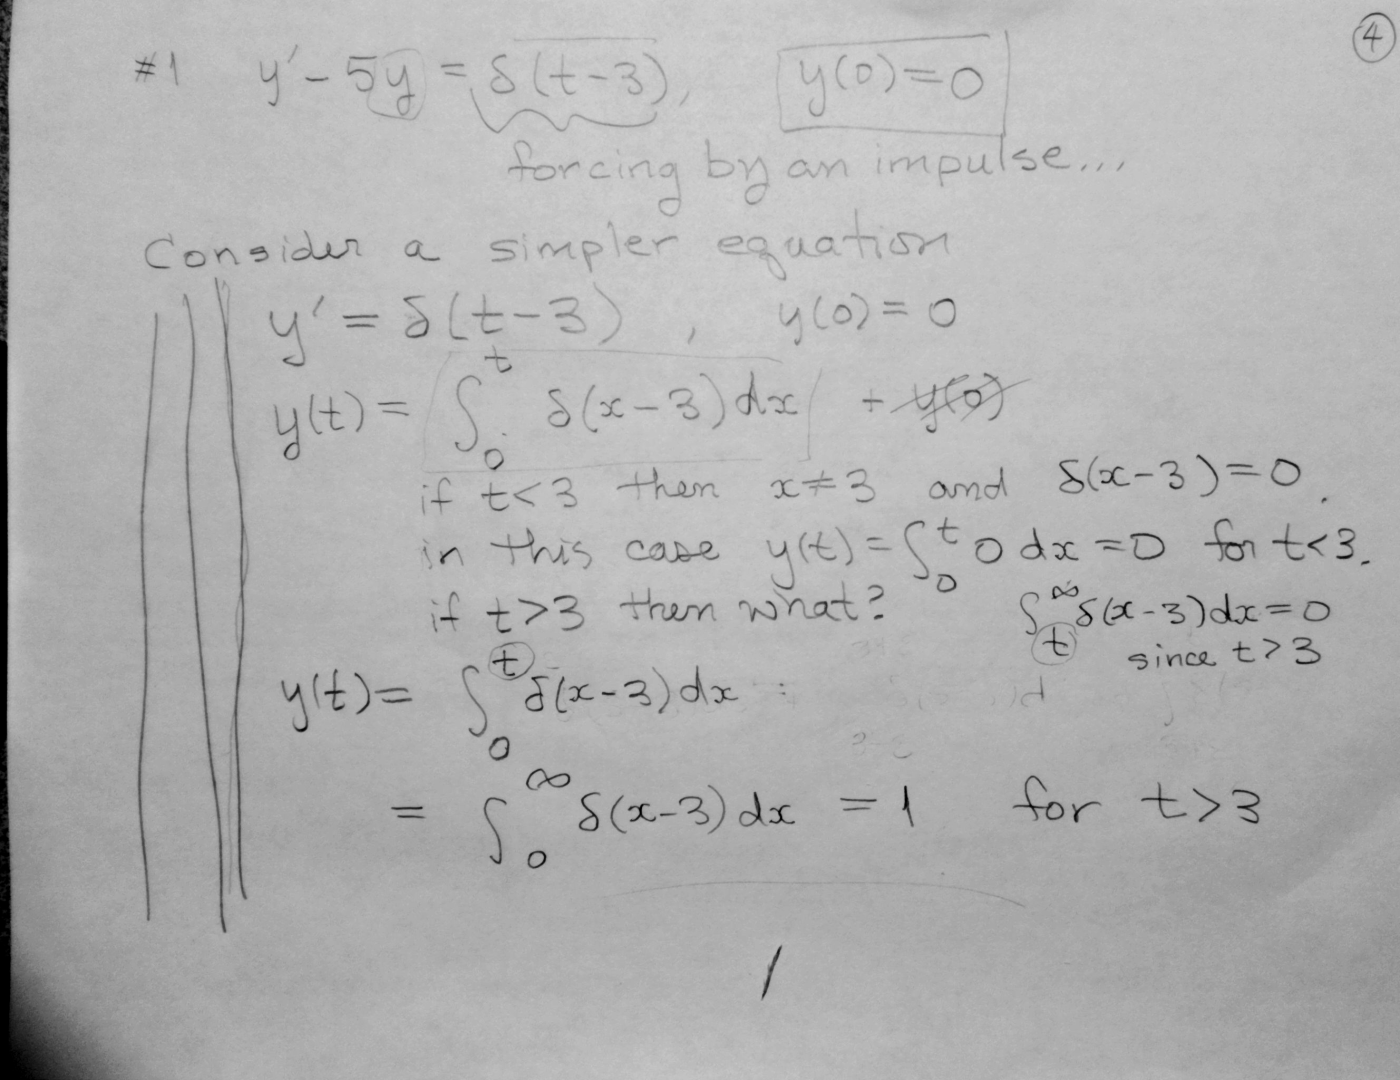 ④
#1 y′ − 5y = δ(t−3), y(0)=0
forcing by an impulse...
Consider a simpler equation
y′ = δ(t−3) , y(0)=0
y(t) = ∫₀ᵗ δ(x−3)dx + y(0)
if t<3 then x≠3 and δ(x−3)=0.
in this case y(t)=∫₀ᵗ 0 dx =0 for t<3.
if t>3 then what? ∫ₜ^∞ δ(x−3)dx=0
since t>3
y(t)= ∫₀ᵗ δ(x−3)dx
= ∫₀^∞ δ(x−3)dx = 1 for t>3